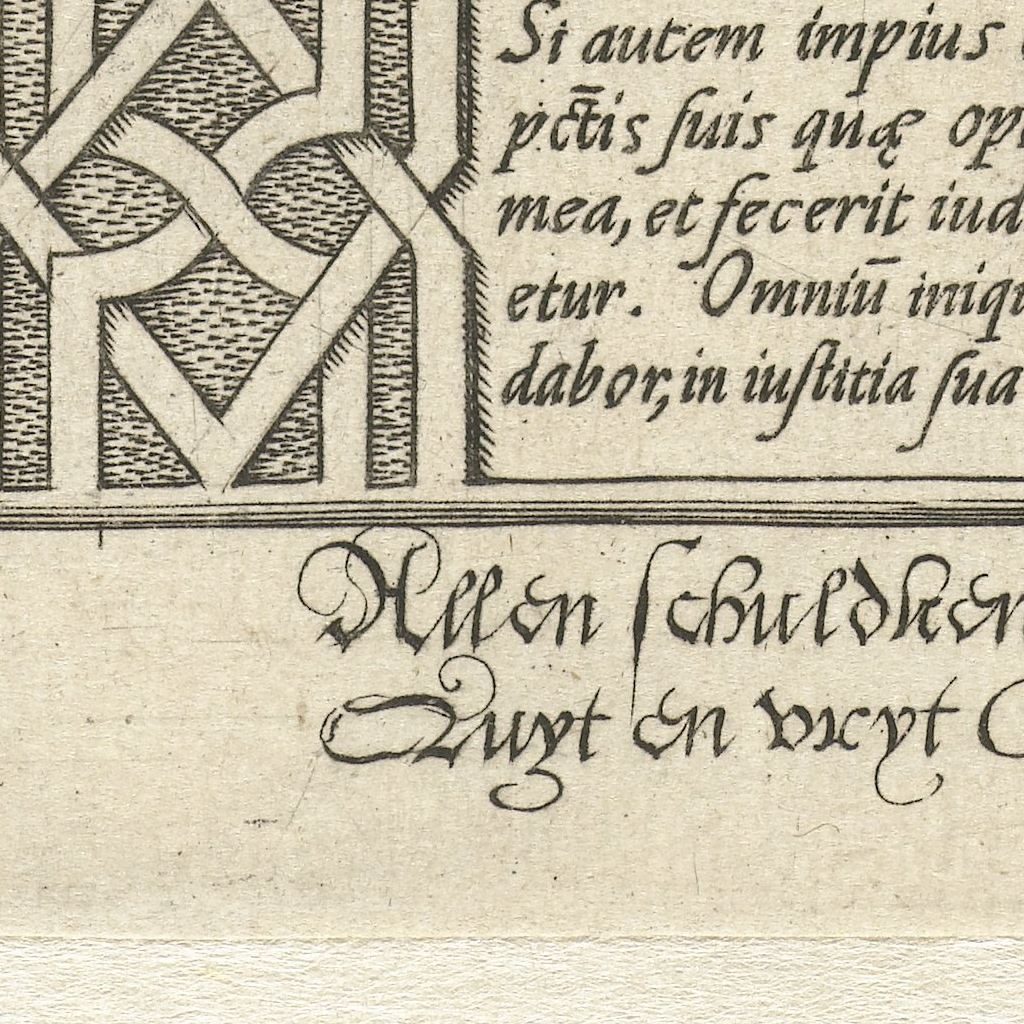 Si autem impius
pc̄tis suis quæ op
mea, et fecerit iud
etur. Omniū iniqu
dabor, in iustitia sua
Allen schuldken
Quyt en vryt